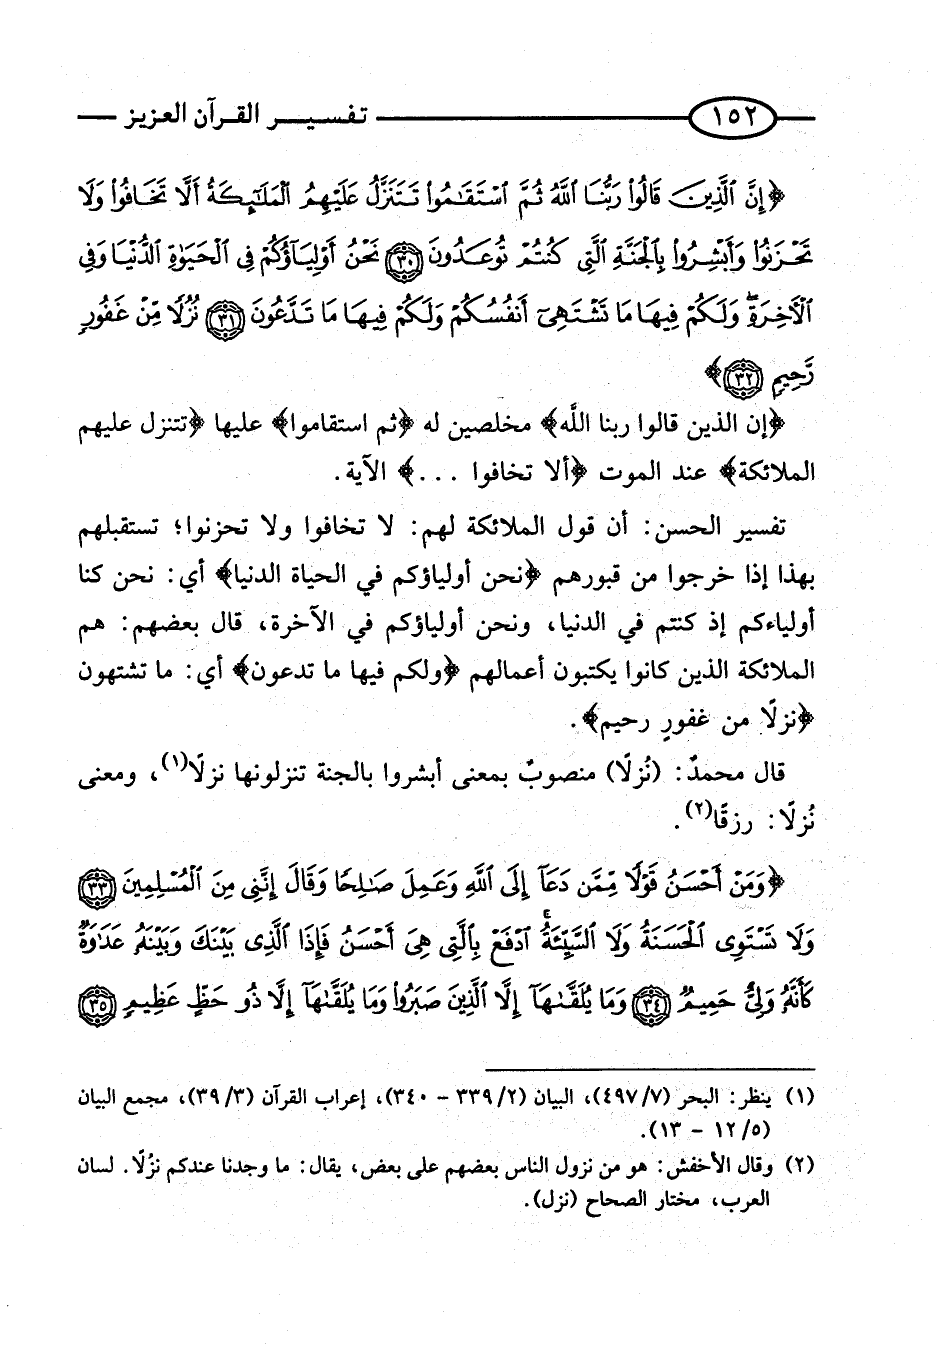 ١٥٢ تفسير القرآن العزيز
﴿إِنَّ ٱلَّذِينَ قَالُوا۟ رَبُّنَا ٱللَّهُ ثُمَّ ٱسْتَقَٰمُوا۟ تَتَنَزَّلُ عَلَيْهِمُ ٱلْمَلَٰٓئِكَةُ أَلَّا تَخَافُوا۟ وَلَا
تَحْزَنُوا۟ وَأَبْشِرُوا۟ بِٱلْجَنَّةِ ٱلَّتِى كُنتُمْ تُوعَدُونَ ٣٠ نَحْنُ أَوْلِيَآؤُكُمْ فِى ٱلْحَيَوٰةِ ٱلدُّنْيَا وَفِى
ٱلْءَاخِرَةِۖ وَلَكُمْ فِيهَا مَا تَشْتَهِىٓ أَنفُسُكُمْ وَلَكُمْ فِيهَا مَا تَدَّعُونَ ٣١ نُزُلًا مِّنْ غَفُورٍ
رَّحِيمٍ ٣٢﴾
﴿إن الذين قالوا ربنا اللَّه﴾ مخلصين له ﴿ثم استقاموا﴾ عليها ﴿تتنزل عليهم
الملائكة﴾ عند الموت ﴿ألا تخافوا . . .﴾ الآية.
تفسير الحسن: أن قول الملائكة لهم: لا تخافوا ولا تحزنوا؛ تستقبلهم
بهذا إذا خرجوا من قبورهم ﴿نحن أولياؤكم في الحياة الدنيا﴾ أي: نحن كنا
أولياءكم إذ كنتم في الدنيا، ونحن أولياؤكم في الآخرة، قال بعضهم: هم
الملائكة الذين كانوا يكتبون أعمالهم ﴿ولكم فيها ما تدعون﴾ أي: ما تشتهون
﴿نزلًا من غفورٍ رحيم﴾.
قال محمدٌ: (نُزلًا) منصوبٌ بمعنى أبشروا بالجنة تنزلونها نزلًا(١)، ومعنى
نُزلًا: رزقًا(٢).
﴿وَمَنْ أَحْسَنُ قَوْلًا مِّمَّن دَعَآ إِلَى ٱللَّهِ وَعَمِلَ صَٰلِحًا وَقَالَ إِنَّنِى مِنَ ٱلْمُسْلِمِينَ ٣٣
وَلَا تَسْتَوِى ٱلْحَسَنَةُ وَلَا ٱلسَّيِّئَةُۚ ٱدْفَعْ بِٱلَّتِى هِىَ أَحْسَنُ فَإِذَا ٱلَّذِى بَيْنَكَ وَبَيْنَهُۥ عَدَٰوَةٌ
كَأَنَّهُۥ وَلِىٌّ حَمِيمٌ ٣٤ وَمَا يُلَقَّىٰهَآ إِلَّا ٱلَّذِينَ صَبَرُوا۟ وَمَا يُلَقَّىٰهَآ إِلَّا ذُو حَظٍّ عَظِيمٍ ٣٥
(١) ينظر: البحر (٤٩٧/٧)، البيان (٣٣٩/٢ – ٣٤٠)، إعراب القرآن (٣٩/٣)، مجمع البيان
(١٢/٥ – ١٣).
(٢) وقال الأخفش: هو من نزول الناس بعضهم على بعض، يقال: ما وجدنا عندكم نزُلًا. لسان
العرب، مختار الصحاح (نزل).